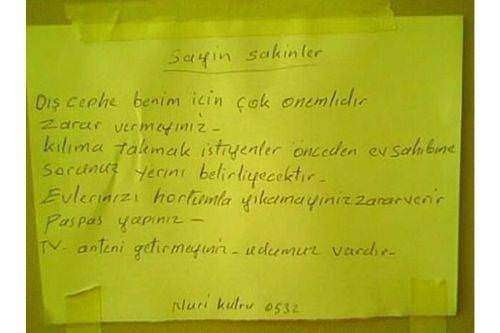 Sayın Sakinler
Dış cephe benim için çok önemlidir
zarar vermeyiniz -
kılıma takmak istiyenler önceden ev sahibine
sorunuz yerini belirliyecektir -
Evlerinizi hortumla yıkamayınız zarar verir
Paspas yapınız -
TV - anteni getirmeyiniz - udumuz vardır -
Nuri kutru 0532